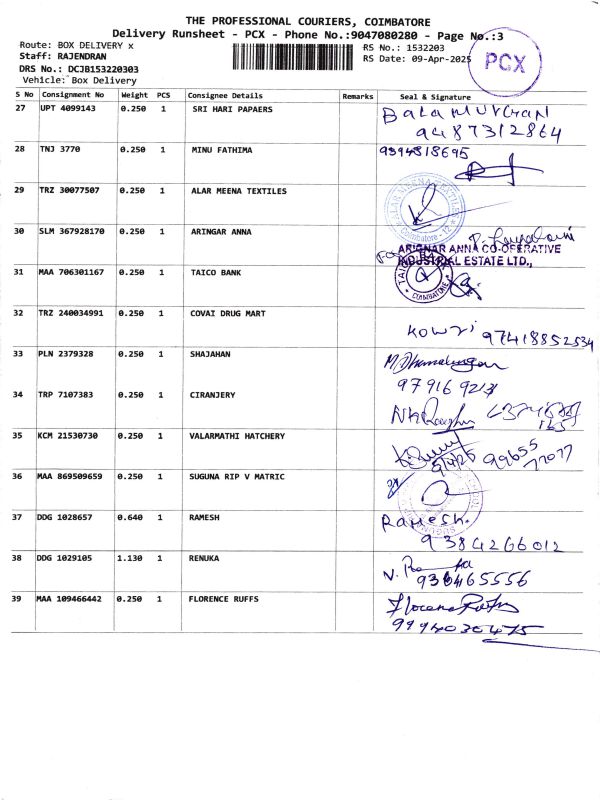 THE PROFESSIONAL COURIERS, COIMBATORE
Delivery Runsheet - PCX - Phone No.:9047080280 - Page No.:3
Route: BOX DELIVERY x
RS No.: 1532203
Staff: RAJENDRAN
RS Date: 09-Apr-2025
PCX
DRS No.: DCJB153220303
Vehicle: Box Delivery
S No Consignment No Weight PCS Consignee Details Remarks Seal & Signature
27 UPT 4099143 0.250 1 SRI HARI PAPAERS BALAMURGAN
9487312864
28 TNJ 3770 0.250 1 MINU FATHIMA 9394818695
29 TRZ 30077507 0.250 1 ALAR MEENA TEXTILES
30 SLM 367928170 0.250 1 ARINGAR ANNA
ARIGNAR ANNA CO-OPERATIVE
INDUSTRIAL ESTATE LTD.,
31 MAA 706301167 0.250 1 TAICO BANK
COIMBATORE
32 TRZ 240034991 0.250 1 COVAI DRUG MART
Kowri 97418852534
33 PLN 2379328 0.250 1 SHAJAHAN
34 TRP 7107383 0.250 1 CIRANJERY
35 KCM 21530730 0.250 1 VALARMATHI HATCHERY
99655
77077
36 MAA 869509659 0.250 1 SUGUNA RIP V MATRIC
37 DDG 1028657 0.640 1 RAMESH Ramesh.
9384266012
38 DDG 1029105 1.130 1 RENUKA
936465556
39 MAA 109466442 0.250 1 FLORENCE RUFFS
9994030475